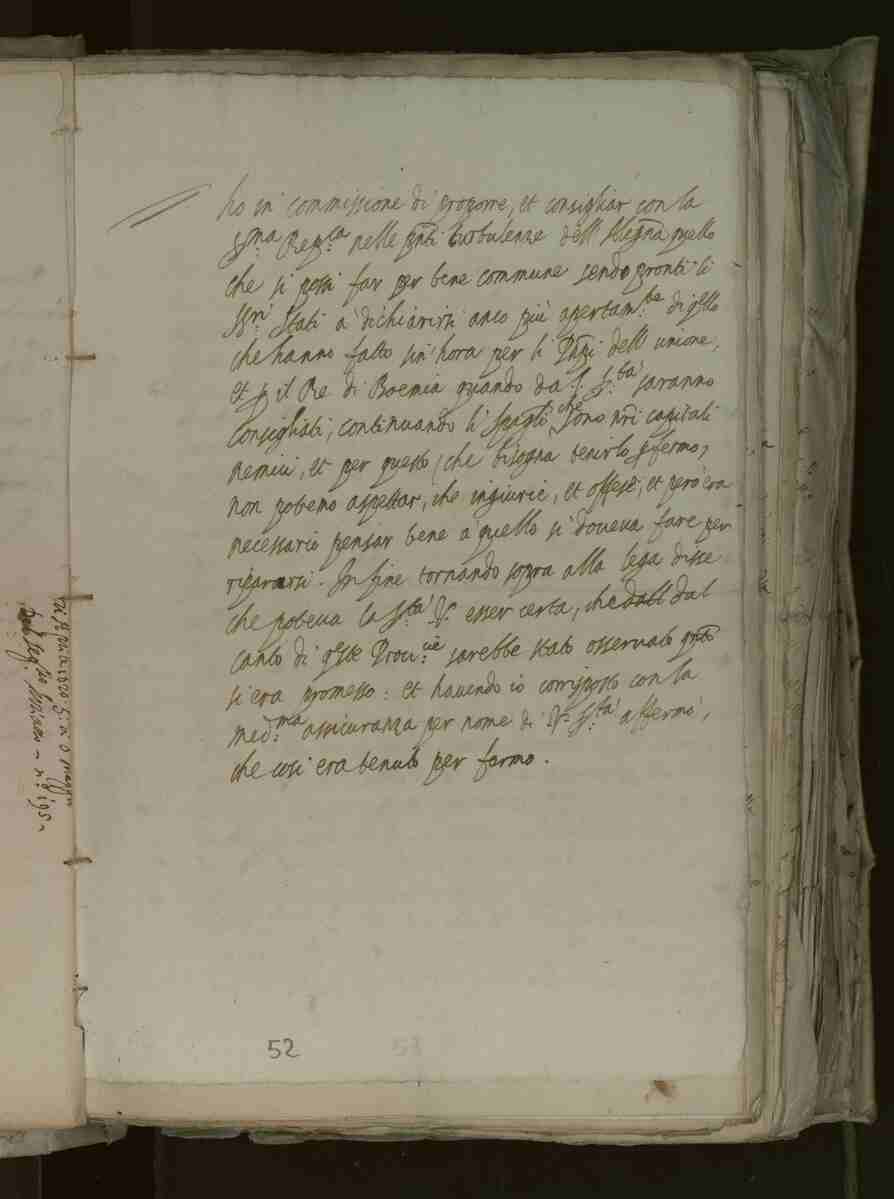 ho in commissione di proporre, et consigliar con la
Ser.ma Rep.ca nelle pnti turbulenze dell'Alegna quello
che si possi far per bene commune sendo pronti li
SSri Stati a dichiarirsi anco più apertam.te di qello
che hanno fatto sin'hora per li Pnpi dell'unione,
et p il Re di Boemia quando da S. S.tà saranno
consigliati; continuando li Spagli che sono nri capitali
nemici, et per questo (che bisogna tenirlo p fermo,
non potemo aspettar, che ingiurie, et offese, et però era
necessario pensar bene a quello si doveva fare per
ripararsi. In fine tornando sopra alla lega disse
che poteva la S.tà V. esser certa, che dall dal
canto di qste Provi.cie sarebbe stato osservato qnto
si era promesso: et havendo io corrisposto con la
med.ma assicuranza per nome di V. S.tà affermò,
che così era tenuto per fermo.
52